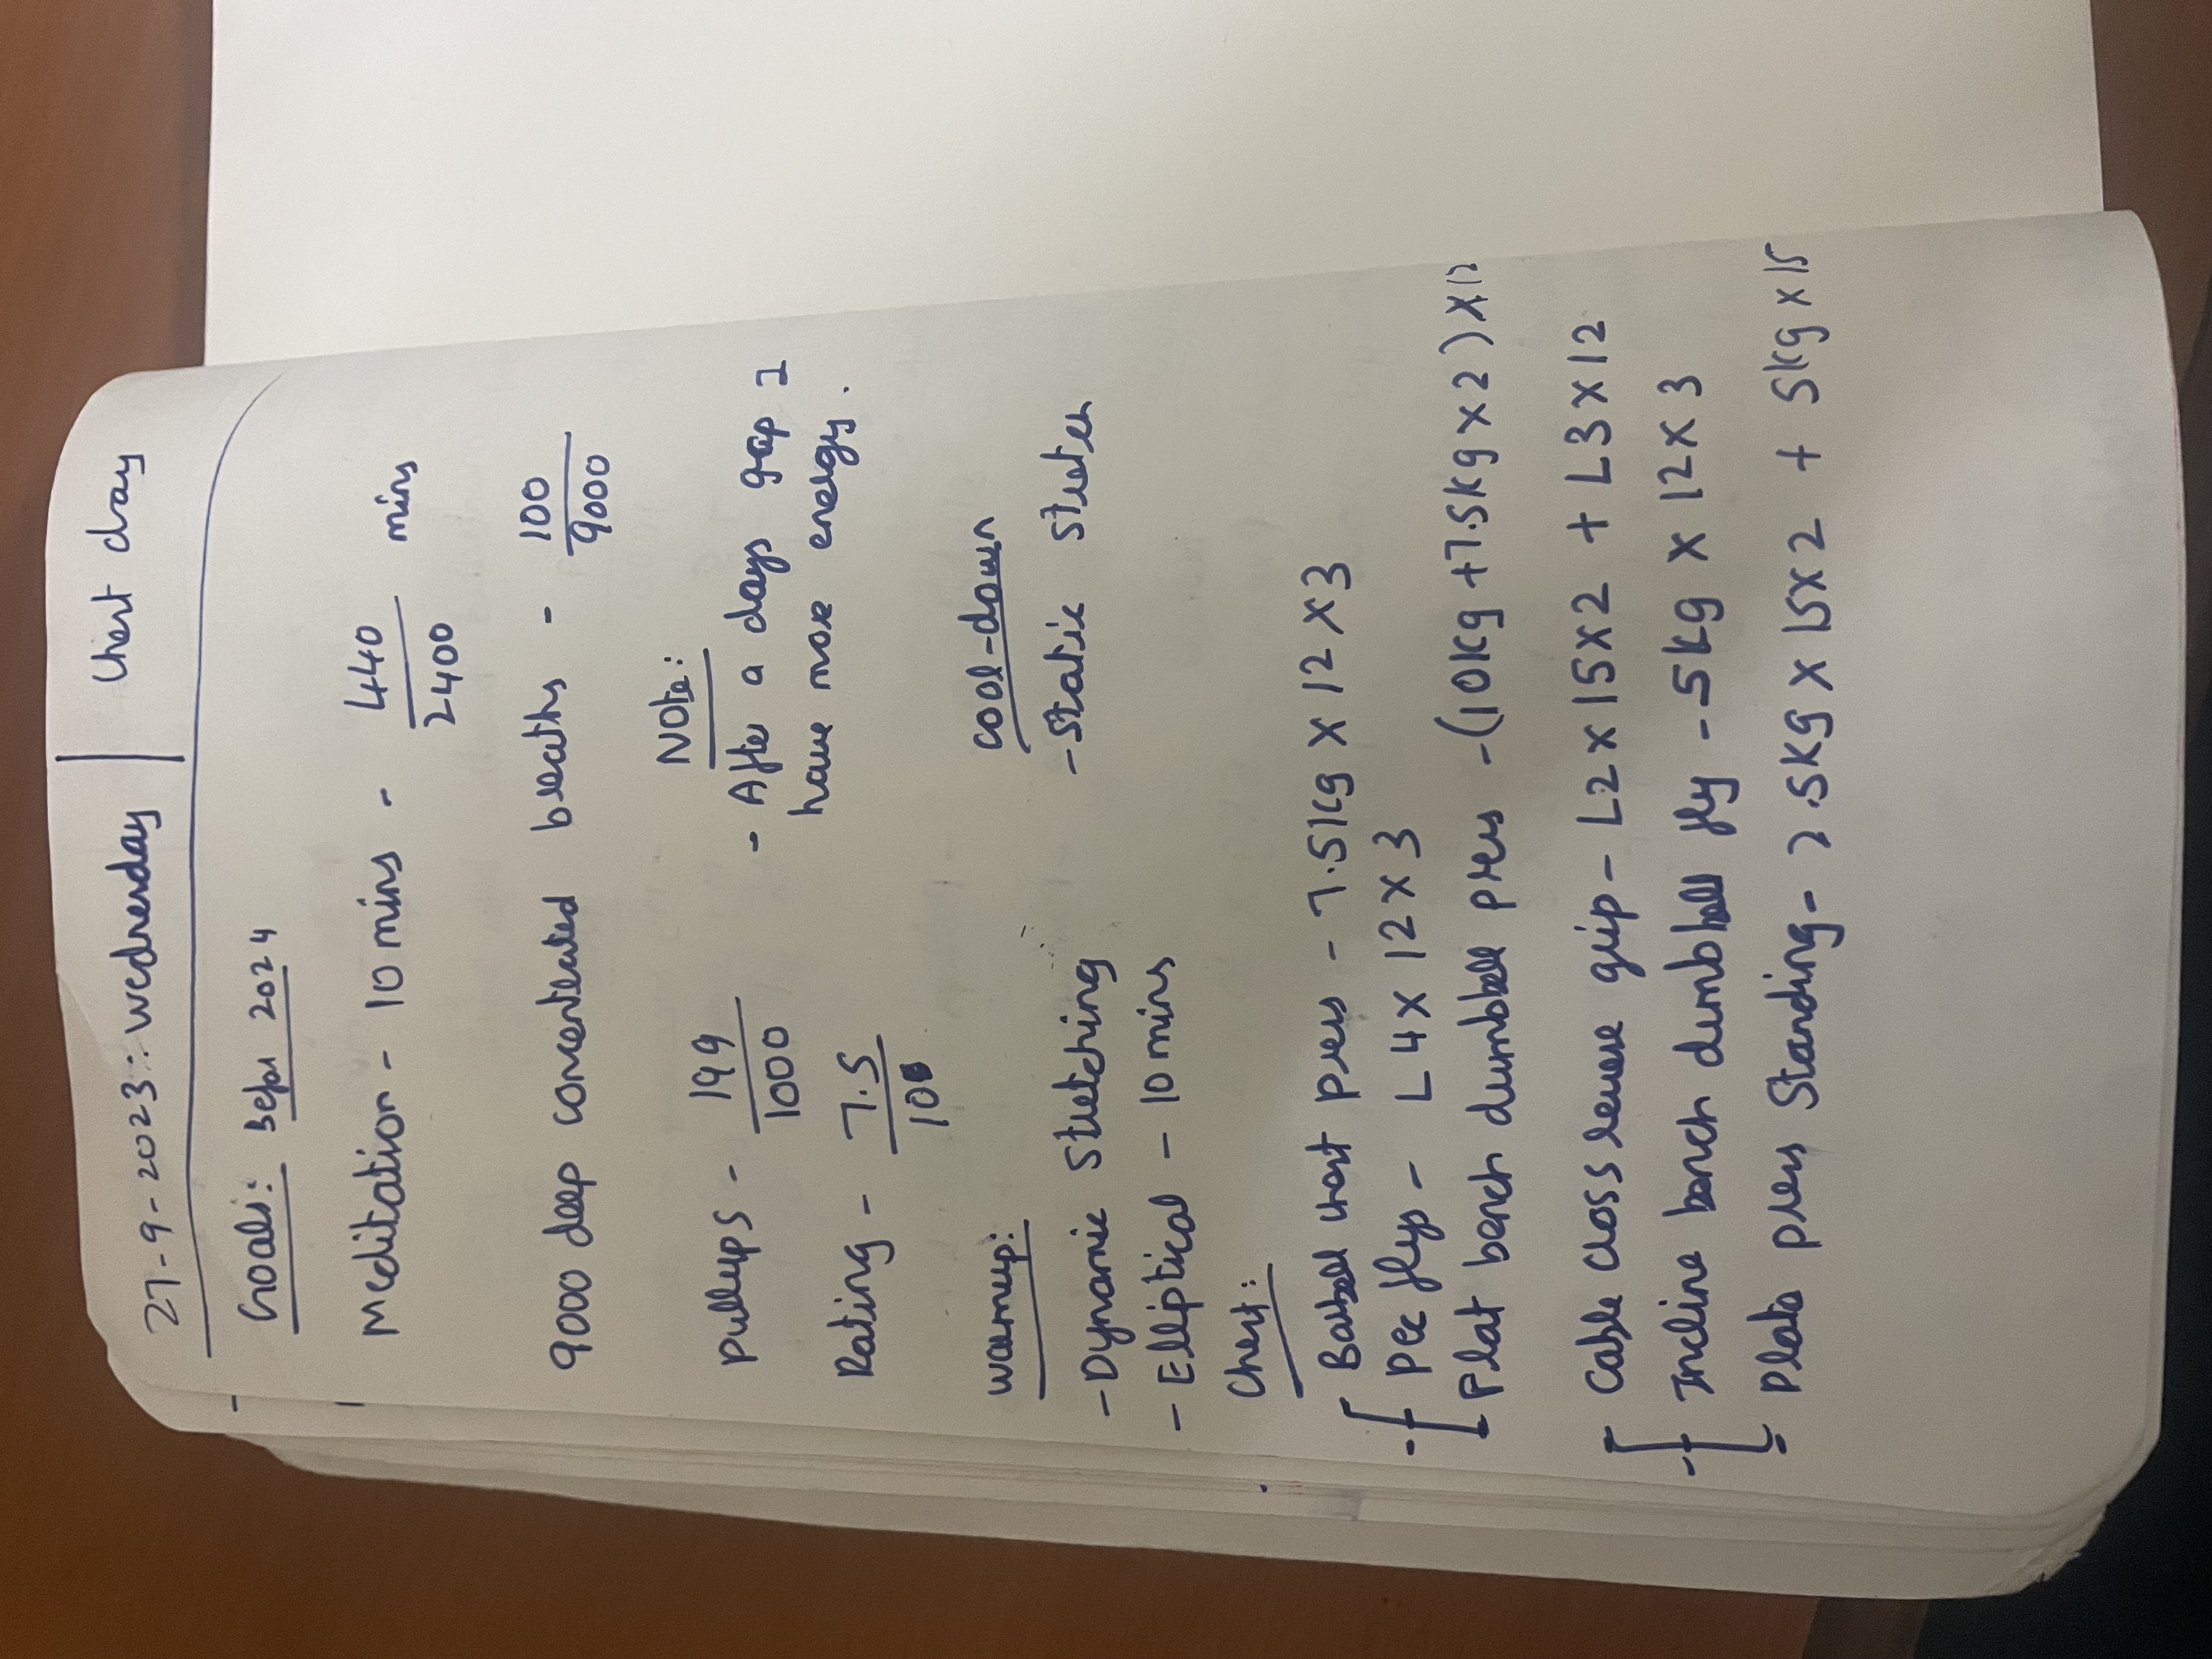 27-9-2023: Wednesday | Chest day
Goals: Sep 2024
Meditation - 10 mins - 440/2400 mins
9000 deep concentrated breaths - 100/9000
Pullups - 199/1000
Note:
- After a days gap I
have more energy.
Rating - 7.5/10
Warmup:
- Dynamic Stretching
- Elliptical - 10 mins
cool-down
- Static stretch
Chest:
- Barbell chest press - 7.5kg x 12 x 3
Pec flys - L4 x 12 x 3
Flat bench dumbbell press - (10kg + 7.5kg x 2) x 12
- Cable cross reverse grip - L2 x 15 x 2 + L3 x 12
Incline bench dumbbell fly - 5kg x 12 x 3
Plate press Standing - 2.5kg x 15 x 2 + 5kg x 15